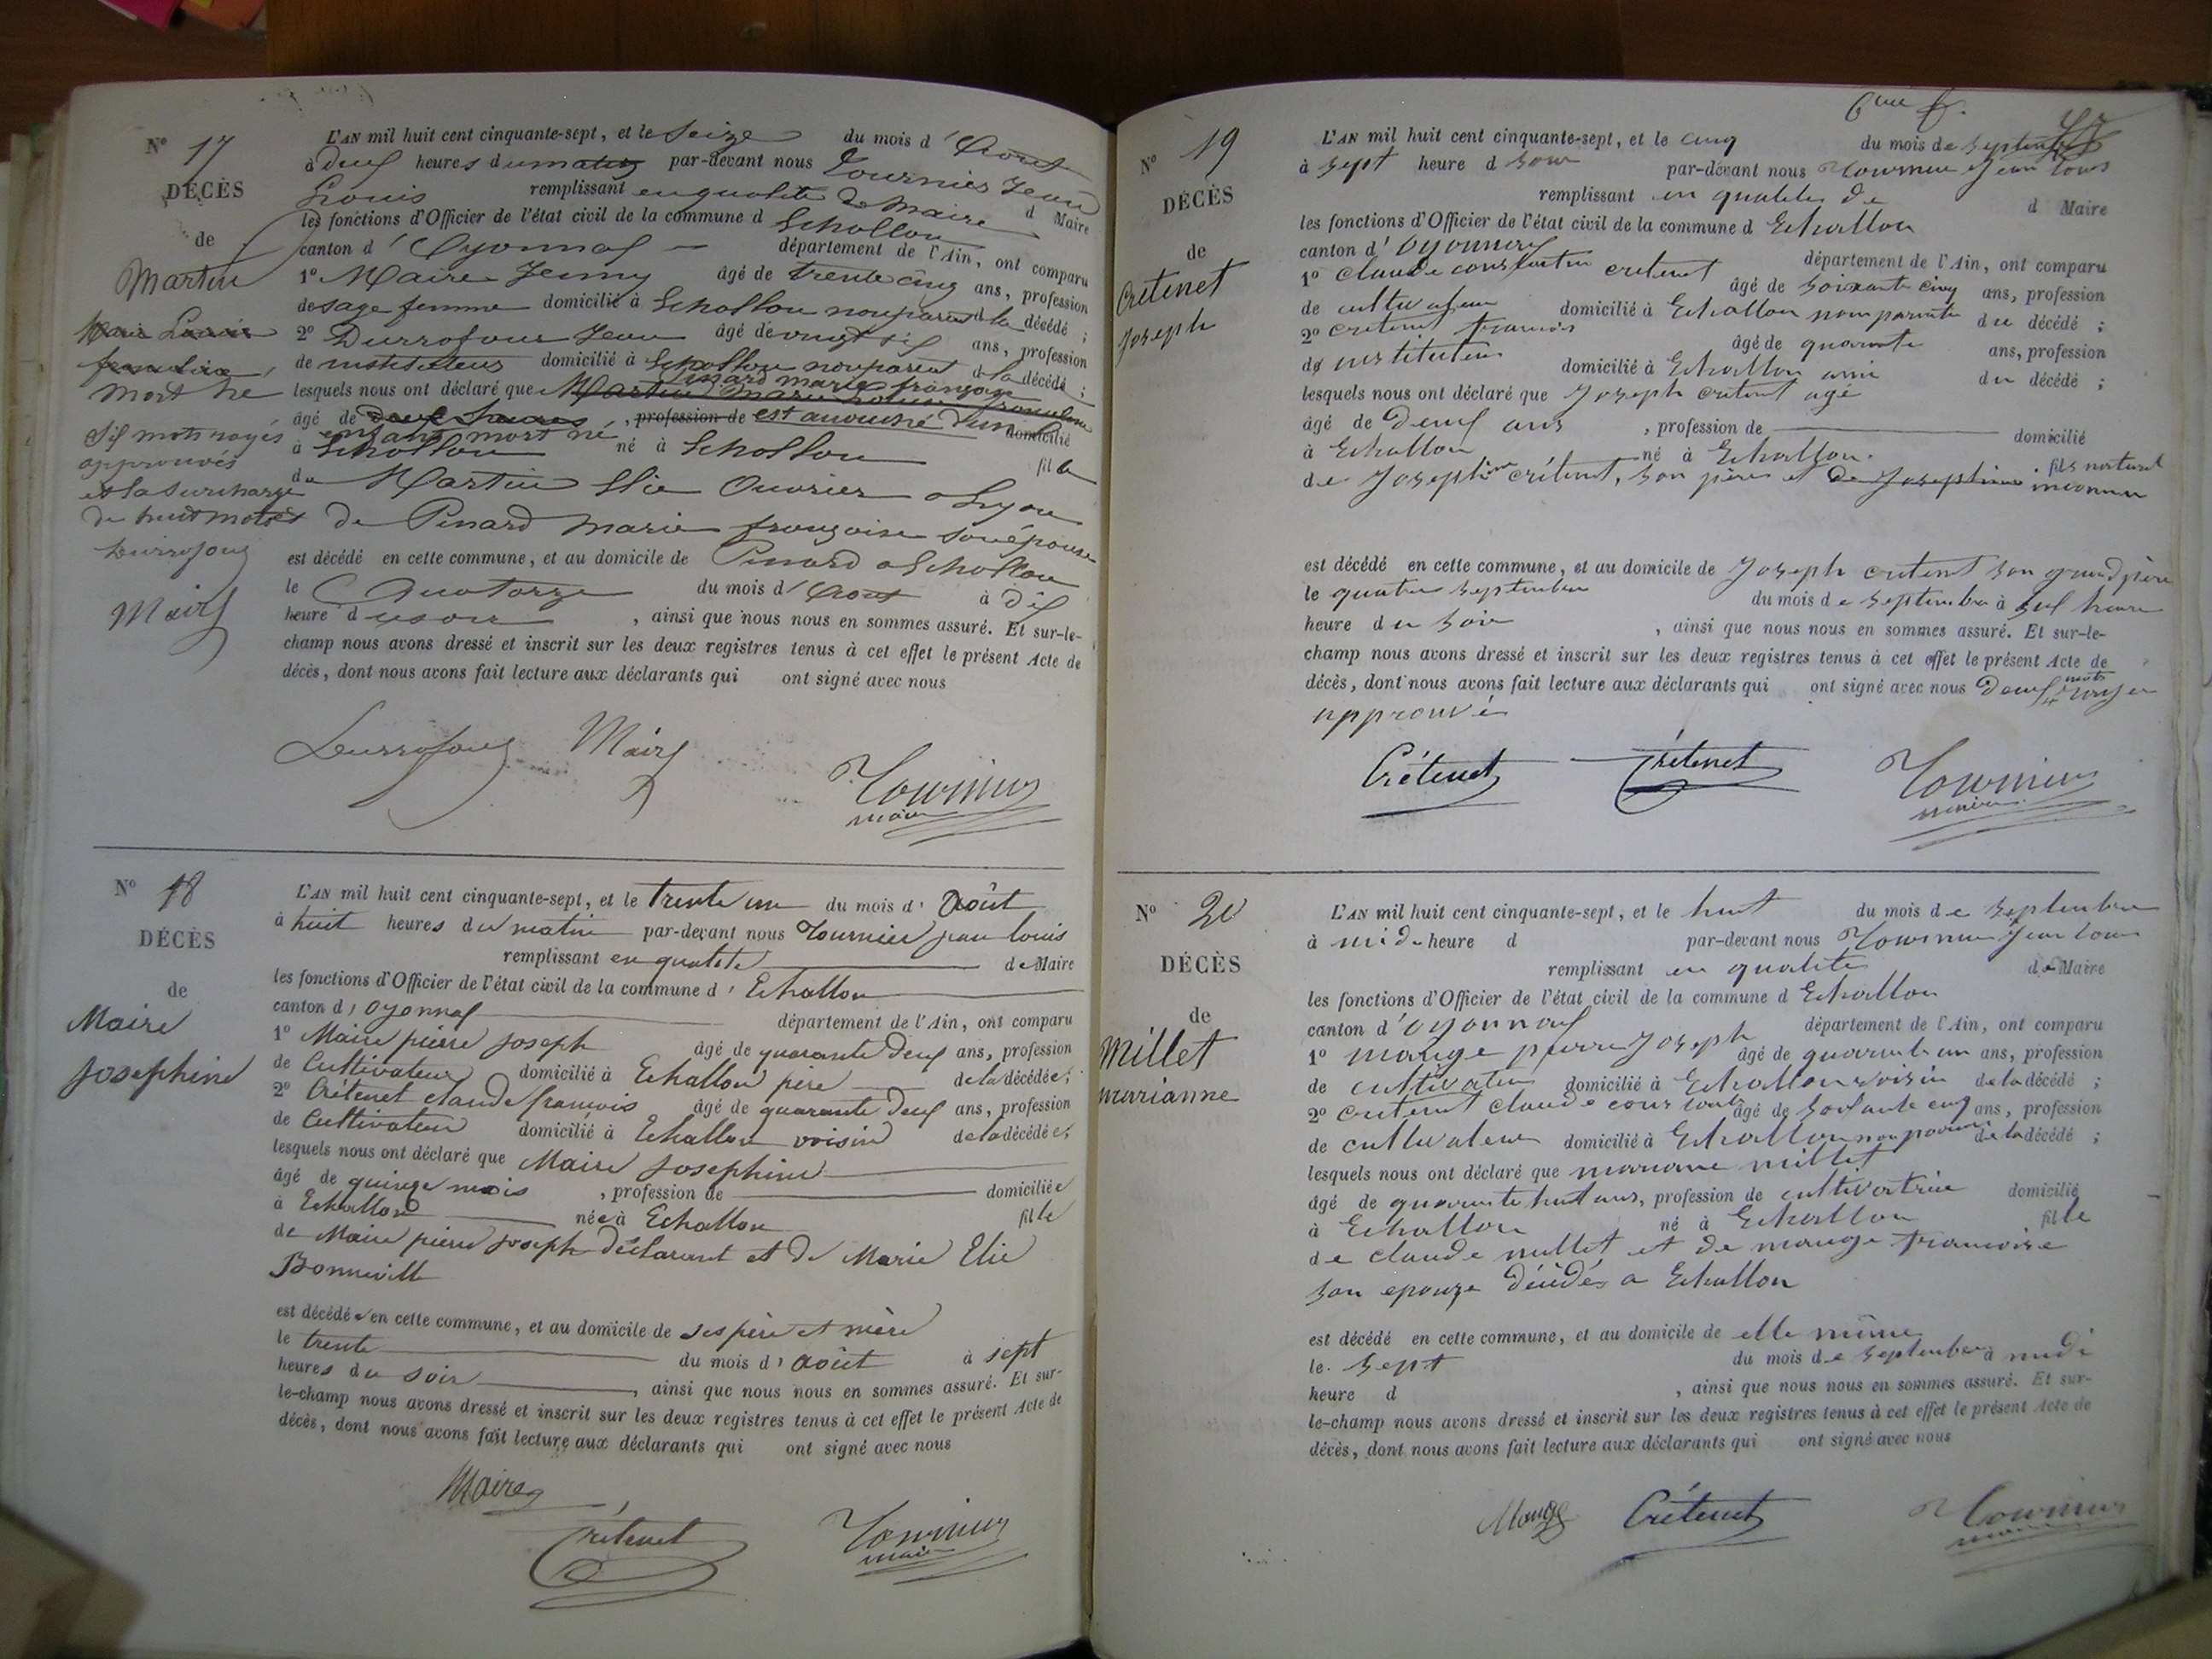 N° 17
DÉCÈS
de
Martin
Marie Louise
françoise
mort né
dix mots rayés
approuvés
et la surcharge
de huit mots
Durrafour
Mairy
L'AN mil huit cent cinquante-sept, et le Seize du mois d'Aout
à deux heures du matin par-devant nous Tournier Jean
Louis remplissant en qualité de maire d Maire
les fonctions d'Officier de l'état civil de la commune d Echallon
canton d'Oyonnax département de l'Ain, ont comparu
1° Maire Jenny âgé de trente cinq ans, profession
de sage femme domicilié à Echallon non parent d la décédé ;
2° Durrafour Jean âgé de vingt six ans, profession
de instituteur domicilié à Echallon non parent d la décédé ;
Pinard marie françoise
lesquels nous ont déclaré que Martin marie Louise françoise
âgé de deux heures , profession de est accouché d'un domicilié
enfant mort né
à Echallon né à Echallon fil le
de Martin Elie Ouvrier a Lyon
de Pinard Marie françoise son épouse
est décédé en cette commune, et au domicile de Pinard a Echallon
le Quatorze du mois d'Aout à dix
heure du soir , ainsi que nous nous en sommes assuré. Et sur-le-
champ nous avons dressé et inscrit sur les deux registres tenus à cet effet le présent Acte de
décès, dont nous avons fait lecture aux déclarants qui ont signé avec nous
Durrafour Mairy Tournier
maire
N° 18
DÉCÈS
de
Maire
Josephine
L'AN mil huit cent cinquante-sept, et le trente un du mois d'Août
à huit heures du matin par-devant nous Tournier jean louis
remplissant en qualité de Maire
les fonctions d'Officier de l'état civil de la commune d'Echallon
canton d'Oyonnax département de l'Ain, ont comparu
1° Maire pierre joseph âgé de quarante deux ans, profession
de Cultivateur domicilié à Echallon père de la décédée ;
2° Crétenet claude françois âgé de quarante deux ans, profession
de Cultivateur domicilié à Echallon voisin de la décédée ;
lesquels nous ont déclaré que Maire Josephine
âgé de quinze mois , profession de domiciliée
à Echallon née à Echallon fille
de Maire pierre joseph déclarant et de Marie Elie
Bonneville
est décédée en cette commune, et au domicile de ses père et mère
le trente du mois d'août à sept
heures du soir , ainsi que nous nous en sommes assuré. Et sur-
le-champ nous avons dressé et inscrit sur les deux registres tenus à cet effet le présent Acte de
décès, dont nous avons fait lecture aux déclarants qui ont signé avec nous
Maire
Crétenet Tournier
maire
6me f.
N° 19
DÉCÈS
de
Crétenet
Joseph
L'AN mil huit cent cinquante-sept, et le cinq du mois de septembre
à sept heure d soir par-devant nous Tournier Jean Louis
remplissant en qualité de d Maire
les fonctions d'Officier de l'état civil de la commune d Echallon
canton d'Oyonnax département de l'Ain, ont comparu
1° Claude constantin cretenet âgé de soixante cinq ans, profession
de cultivateur domicilié à Echallon non parente du décédé ;
2° cretenet francois âgé de quarante ans, profession
de instituteur domicilié à Echallon ami du décédé ;
lesquels nous ont déclaré que Joseph cretenet agé
âgé de Deux ans , profession de domicilié
à Echallon né à Echallon. fils naturel
de Josephine crétenet, son père et de Josephine inconnu
est décédé en cette commune, et au domicile de Joseph cretenet son grand père
le quatre septembre du mois de septembre à six heure
heure du soir , ainsi que nous nous en sommes assuré. Et sur-le-
champ nous avons dressé et inscrit sur les deux registres tenus à cet effet le présent Acte de
décès, dont nous avons fait lecture aux déclarants qui ont signé avec nous Deux mots rayer
approuvé
Crétenet Crétenet Tournier
maire
N° 20
DÉCÈS
de
Millet
marianne
L'AN mil huit cent cinquante-sept, et le huit du mois de septembre
à midi heure d par-devant nous Tournier Jean Louis
remplissant en qualité de Maire
les fonctions d'Officier de l'état civil de la commune d Echallon
canton d'Oyonnax département de l'Ain, ont comparu
1° mauge pierre Joseph âgé de quarante un ans, profession
de cultivateur domicilié à Echallon voisin de la décédé ;
2° cretenet claude constantin âgé de soixante cinq ans, profession
de cultivateur domicilié à Echallon non parent de la décédé ;
lesquels nous ont déclaré que mariane millet
âgé de quarante huit ans, profession de cultivatrice domicilié
à Echallon né à Echallon fille
de claude millet et de mauge francoise
son epouze décédés a Echallon
est décédé en cette commune, et au domicile de elle même
le sept du mois de septembre à midi
heure d , ainsi que nous nous en sommes assuré. Et sur-
le-champ nous avons dressé et inscrit sur les deux registres tenus à cet effet le présent Acte de
décès, dont nous avons fait lecture aux déclarants qui ont signé avec nous
Mauge Crétenet Tournier
maire